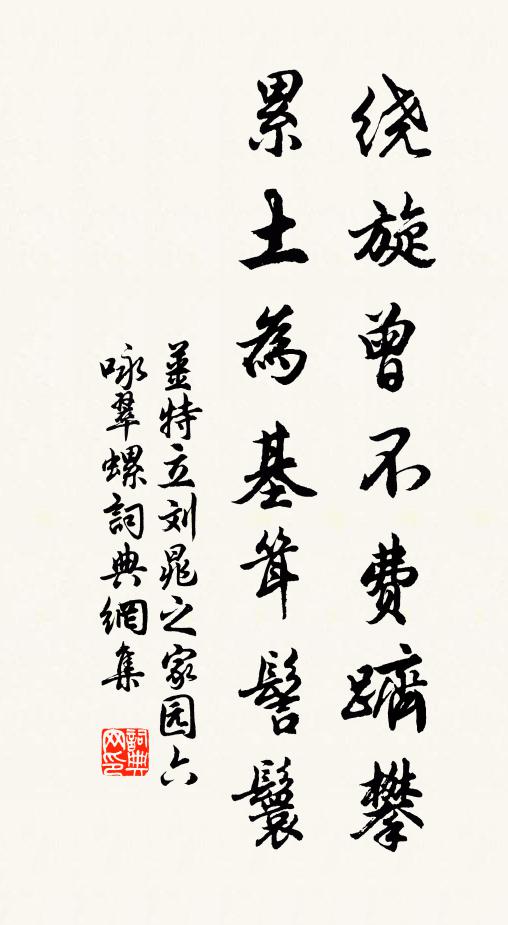 绕旋曾不费跻攀
累土為基耸髻鬟
姜特立刘晁之家园六
咏翠螺詞典網集
詞典
网印